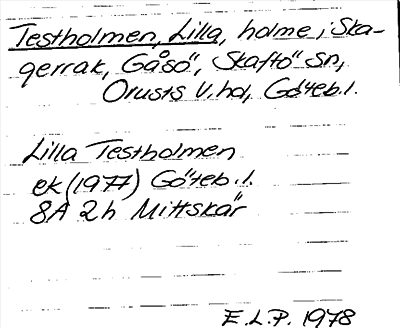 Testholmen, Lilla, holme i Ska-
gerrak, Gåsö, Skaftö sn,
Orusts V. hd, Göteb. l.
Lilla Testholmen
ek (1977) Göteb. l.
8A 2h Mittskär
E.L.P. 1978